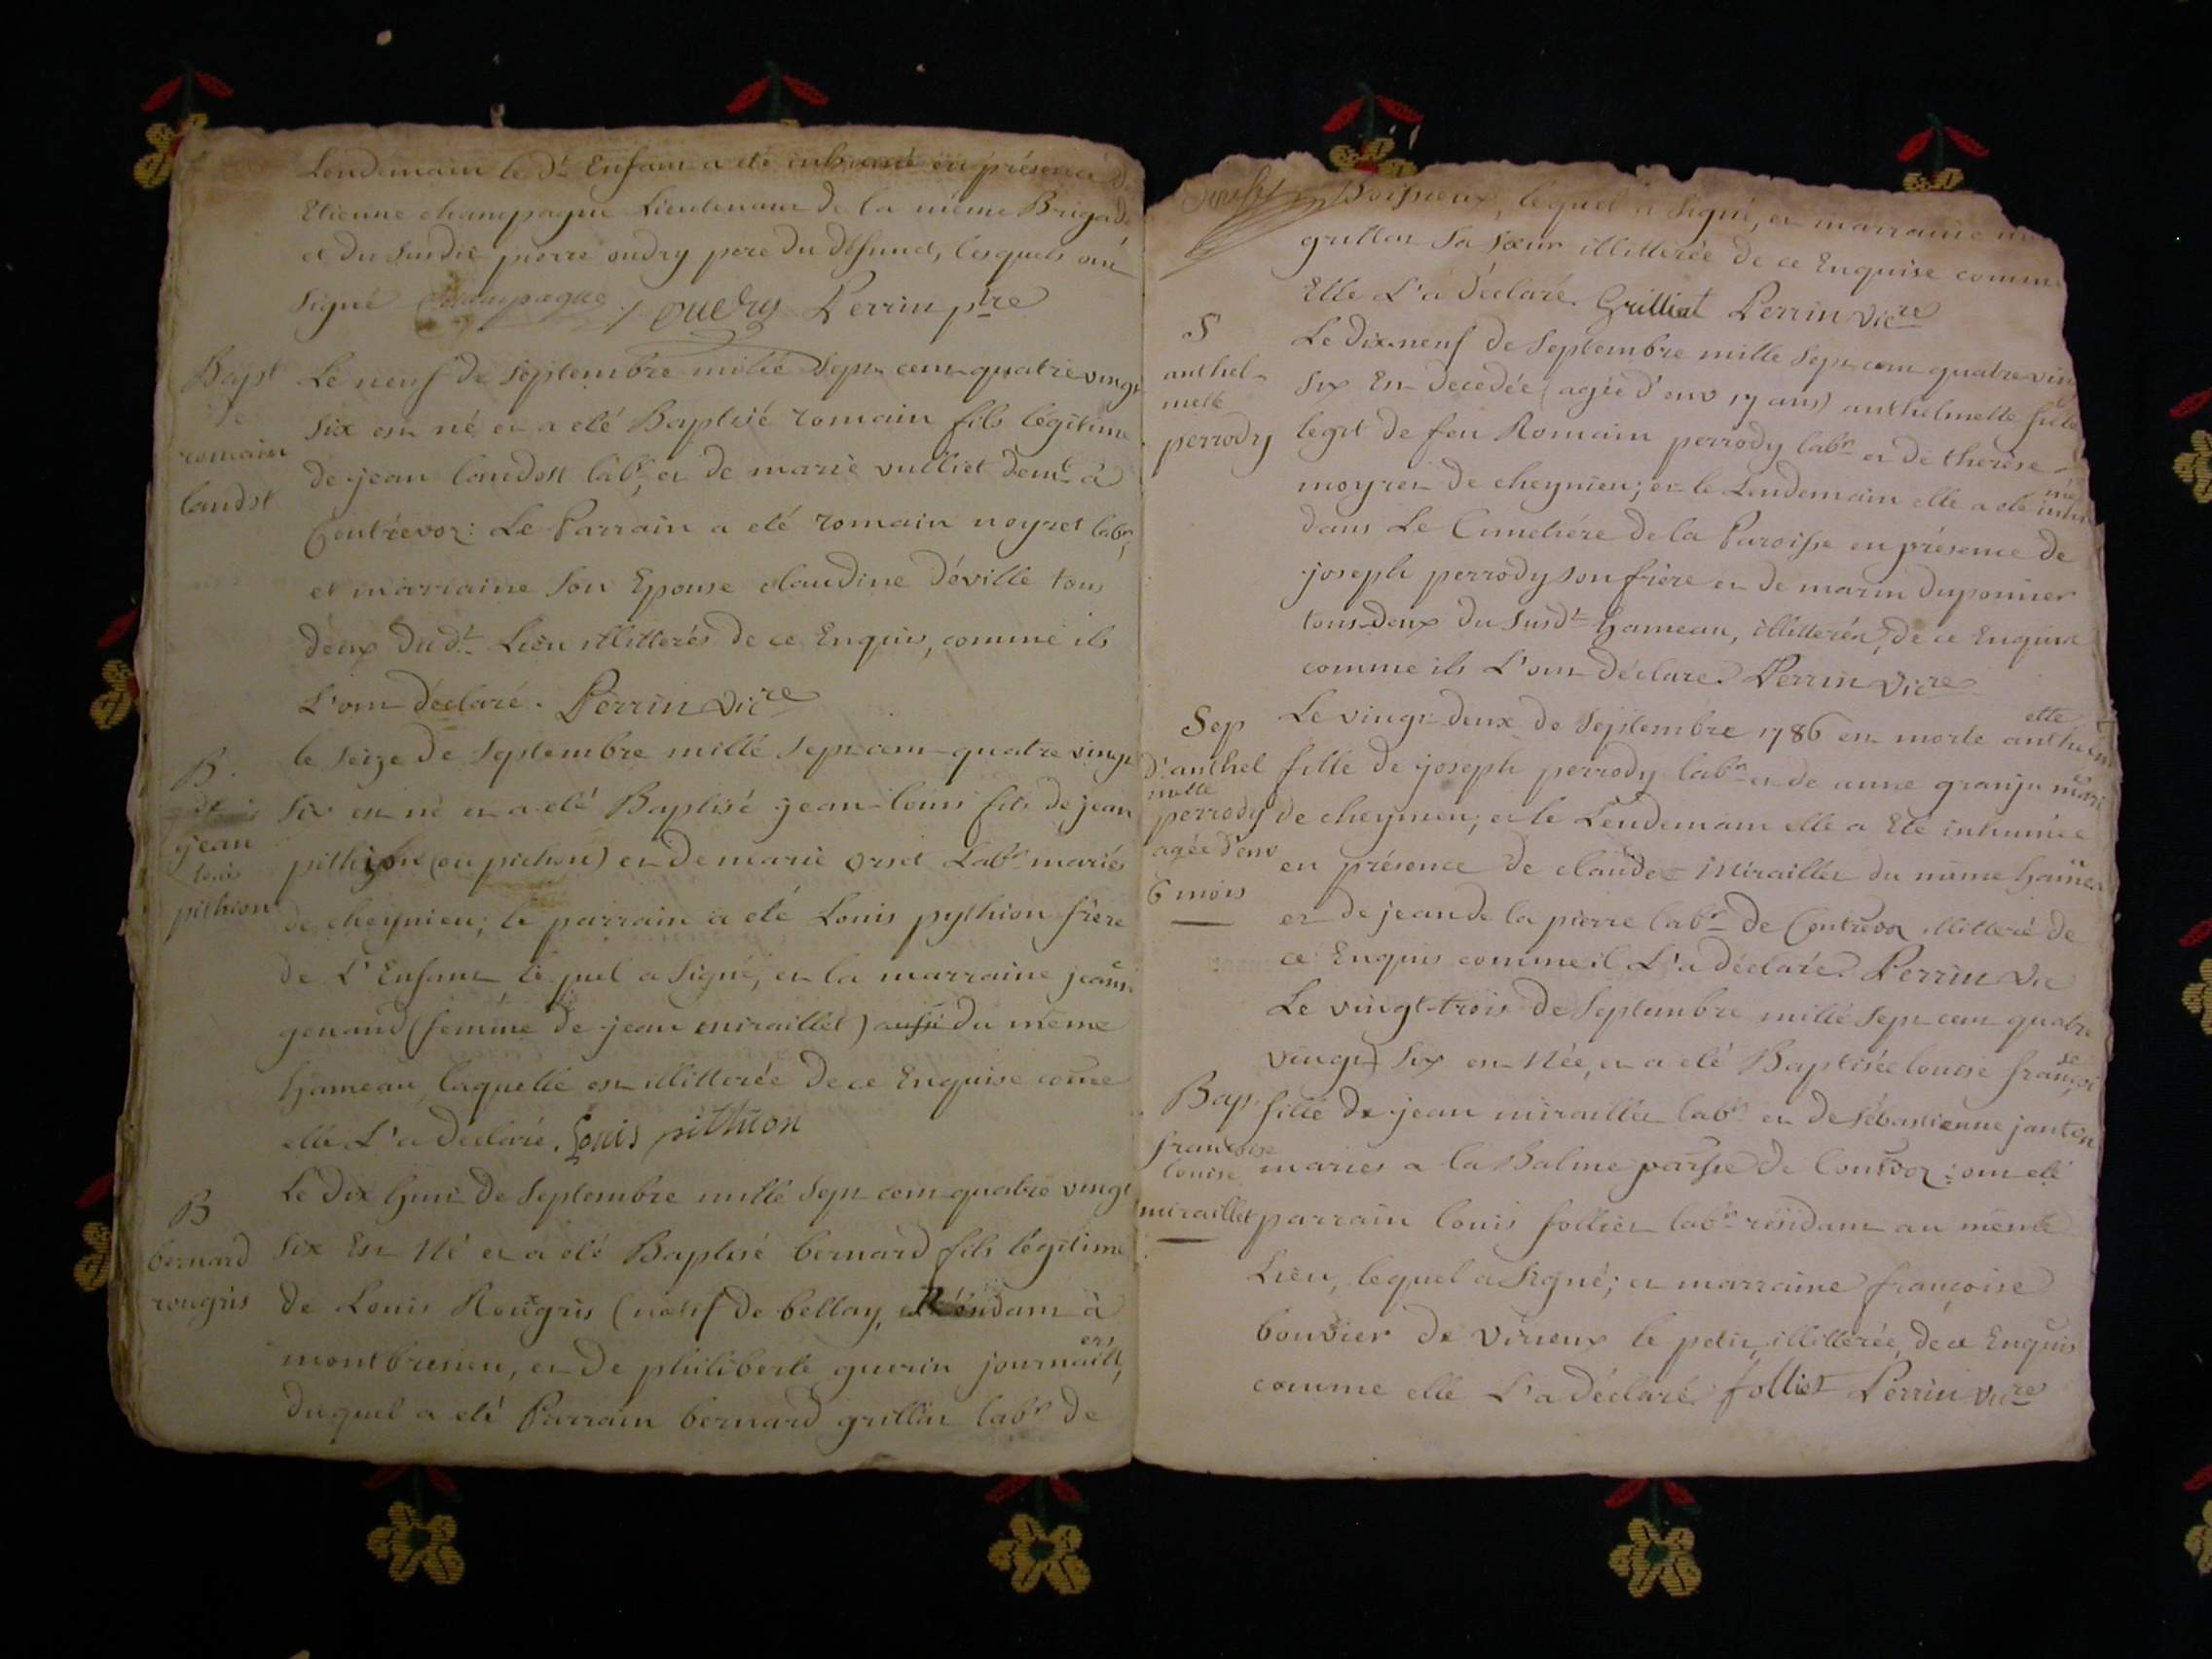 Lendemain le dt Enfant a eté inhumé en présence de
Etienne champagne Lieutenant de la même Brigade
et du susdit pierre oudry pere du défunct, lesquels ont
signé Champagne oudry Perrin ptre
Bapt
romain
landst
Le neuf de Septembre mille Sept cent quatre vingt
six est né et a eté Baptisé romain fils légitime
de jean landost labr et de marie vulliet demt à
Contrevoz: Le Parrain a eté romain noyret labr,
et marraine son Epouse claudine déville tous
deux dudt Lieu illitterés de ce Enquis, comme ils
L'ont déclaré. Perrin vicre
B
jean
louis
pithion
le seize de Septembre mille Sept cent quatre vingt
six est né et a eté Baptisé jean-louis fils de jean
pithion (ou pichon) et de marie orset Labrs mariés
de cheynieu; le parrain a eté Louis pythion frère
de L'Enfant lequel a signé, et la marraine jeanne
genaud (femme de jean miraillet) aussi du même
hameau, laquelle est illitterée de ce Enquise come
elle L'a déclaré. Louis pithion
B
bernard
rougris
Le dix huit de Septembre mille Sept cent quatre vingt
six Est Né et a eté Baptisé bernard fils légitime
de Louis Rougris (natif de bellay, Résidant à
montbresieu, et de philiberte guerin journaillers,
duquel a eté Parrain bernard grillin labr de
Boissieux, lequel a signé, et marraine
grillin sa sœur illitterée de ce Enquise comme
Elle L'a déclaré. Grilliat Perrin vicre
S
anthel-
melle
perrody
Le dix-neuf de Septembre mille Sept cent quatre vingt
six Est decedée (agée d'env 17 ans) anthelmette fille
legit de feu Romain perrody labr et de therèse
moyret de cheynieu; et le Lendemain elle a eté inhumée
dans Le Cimetiére de la Paroisse en présence de
joseph perrody son frère et de marin duponnet
tous deux du susdt hameau, illitterés, de ce Enquis
comme ils L'ont déclaré. Perrin vicre
Sep
d'anthel
mette
perrody
agée d'env
6 mois
Le vingt deux de Septembre 1786 est morte anthelmette
fille de joseph perrody labr et de anne granje mariés
de cheynieu; et le Lendemain elle a Eté inhumée
en présence de claude Miraillet du même hameau
et de jean de la pierre labr de Contrevoz illitteré de
ce Enquis comme il L'a déclaré. Perrin vic
Bap
francoise
louise
miraillet
Le vingt-trois de Septembre mille Sept cent quatre
vingt six est Née, et a eté Baptisée louise françoise
fille de jean miraillet labr et de sébastienne janton
mariés a la Balme parsse de Contrvoz: ont eté
parrain louis folliet labr résidant au même
Lieu, lequel a signé; et marraine francoise
bouvier de virieux le petit, illitterée, de ce Enquis
comme elle L'a déclaré folliet Perrin vicre